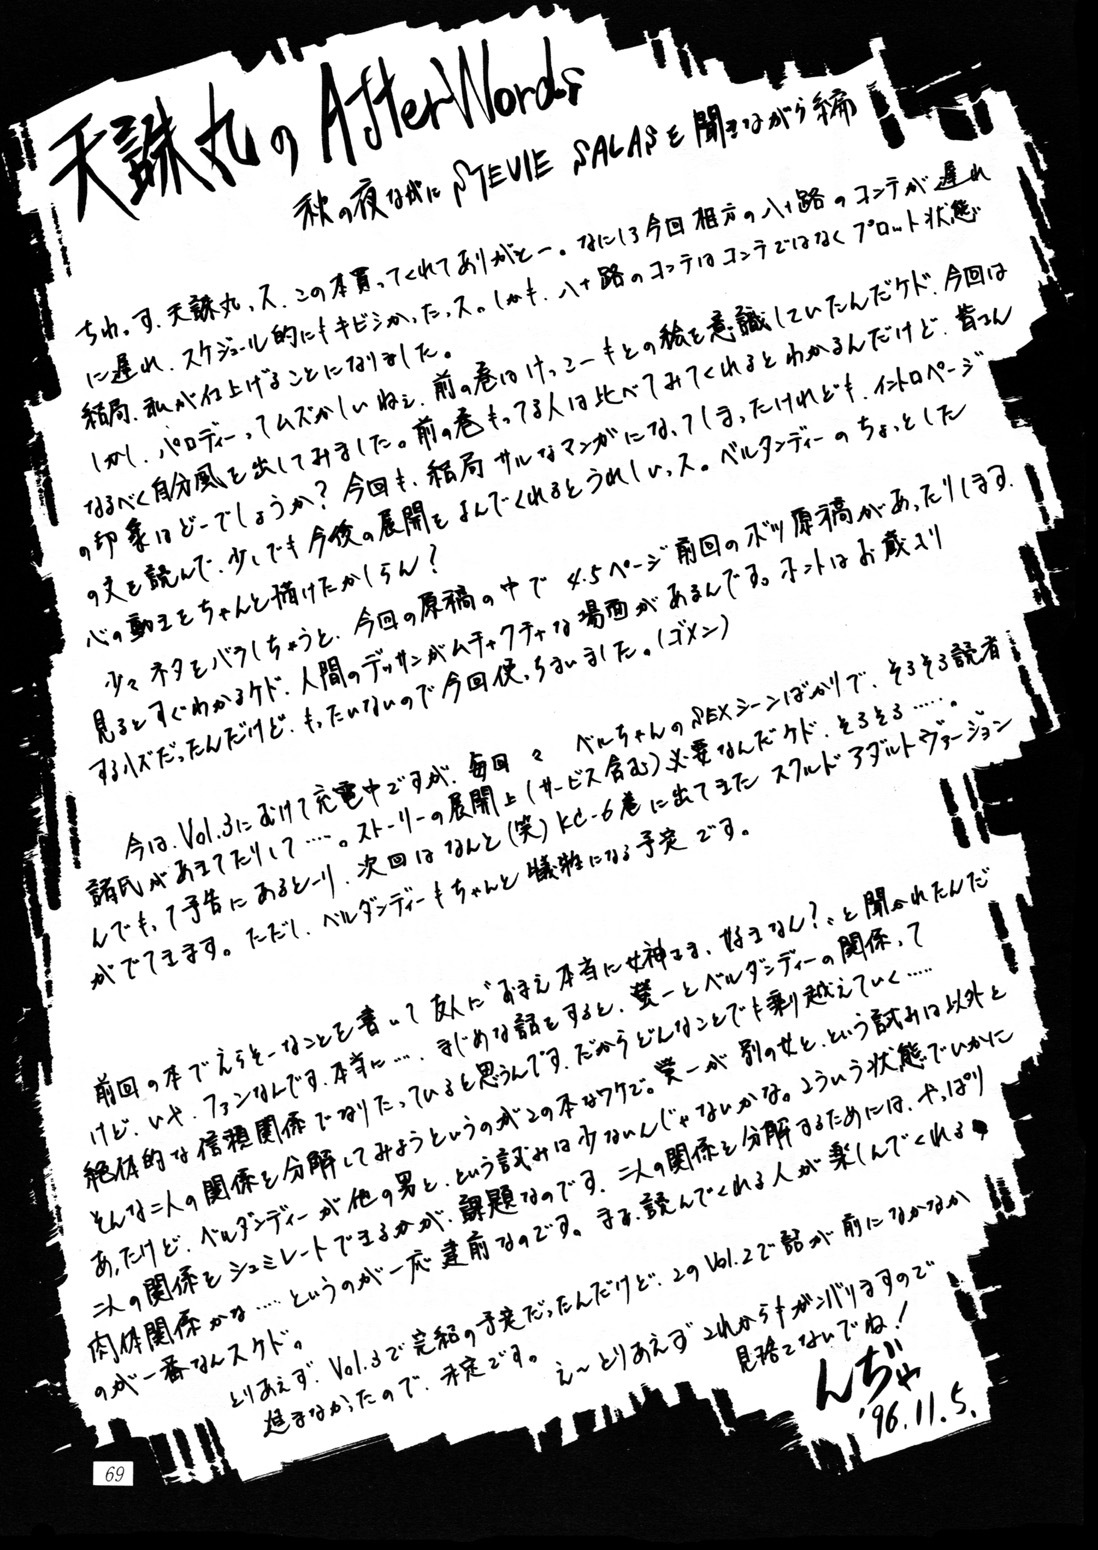 天誅丸の AfterWords
秋の夜ながに STEVIE SALASを聞きながら編
ちわっす、天誅丸っス、この本買ってくれてありがとー。なにしろ今回相方の八十路のコンテが遅れ
に遅れ、スケジュール的にもキビシかったっス。しかも、八十路のコンテはコンテではなくプロット状態
結局、私が仕上げることになりました。
しかし、パロディーってムズかしいねェ、前の巻はけっこーもとの絵を意識していたんだケド、今回は
なるべく自分風を出してみました。前の巻もってる人は比べてみてくれるとわかるんだけど、皆さん
の印象はどーでしょうか?今回も、結局サルなマンガになってしまったけれども、イントロページ
の文を読んで、少しでも今後の展開をよんでくれるとうれしいっス。ベルダンディーのちょっとした
心の動きをちゃんと描けたかしらん?
少々ネタをバラしちゃうと、今回の原稿の中で4.5ページ前回のボツ原稿があったりします。
見るとすぐわかるケド、人間のデッサンがムチャクチャな場面があるんです。ホントはお蔵入り
するハズだったんだけど、もったいないので今回使っちまいました。(ゴメン)
今は、Vol.3にむけて充電中ですが、毎回々 ベルちゃんのSEXシーンばかりで、そろそろ読者
諸氏があきてたりして‥‥。ストーリーの展開上(サービス含む)必要なんだケド、そろそろ‥‥‥。
んでもって予告にあるとーり、次回はなんと(笑)KC-6巻に出てきた スクルド アダルトヴァージョン
がでてきます。ただし、ベルダンディーもちゃんと犠牲になる予定です。
前回の本でえらそーなことを書いて友人に"おまえ本当に女神さま、好きなん?"と聞かれたんだ
けど、いや、ファンなんです、本当に‥‥、まじめな話をすると、螢一とベルダンディーの関係って
絶体的な信頼関係でなりたっていると思うんです、だからどんなことでも乗り越えていく‥‥‥
そんな二人の関係を分解してみようというのがこの本なワケで。螢一が 別の女と、という試みは以外と
あったけど、ベルダンディーが他の男と、という試みは少ないんじゃないかな。こういう状態でいかに
二人の関係をシュミレートできるかが、課題なのです、二人の関係を分解するためには、やっぱり
肉体関係かな‥‥というのが一応建前なのです。まあ、読んでくれる人が楽しんでくれる
のが一番なんスケド。
とりあえず、Vol.3で完結の予定だったんだけど、このVol.2で話が前になかなか
進まなかったので、未定です。
え〜とりあえずこれからもガンバりますので
見捨てないでね!
んぢゃ
'96.11.5.
69